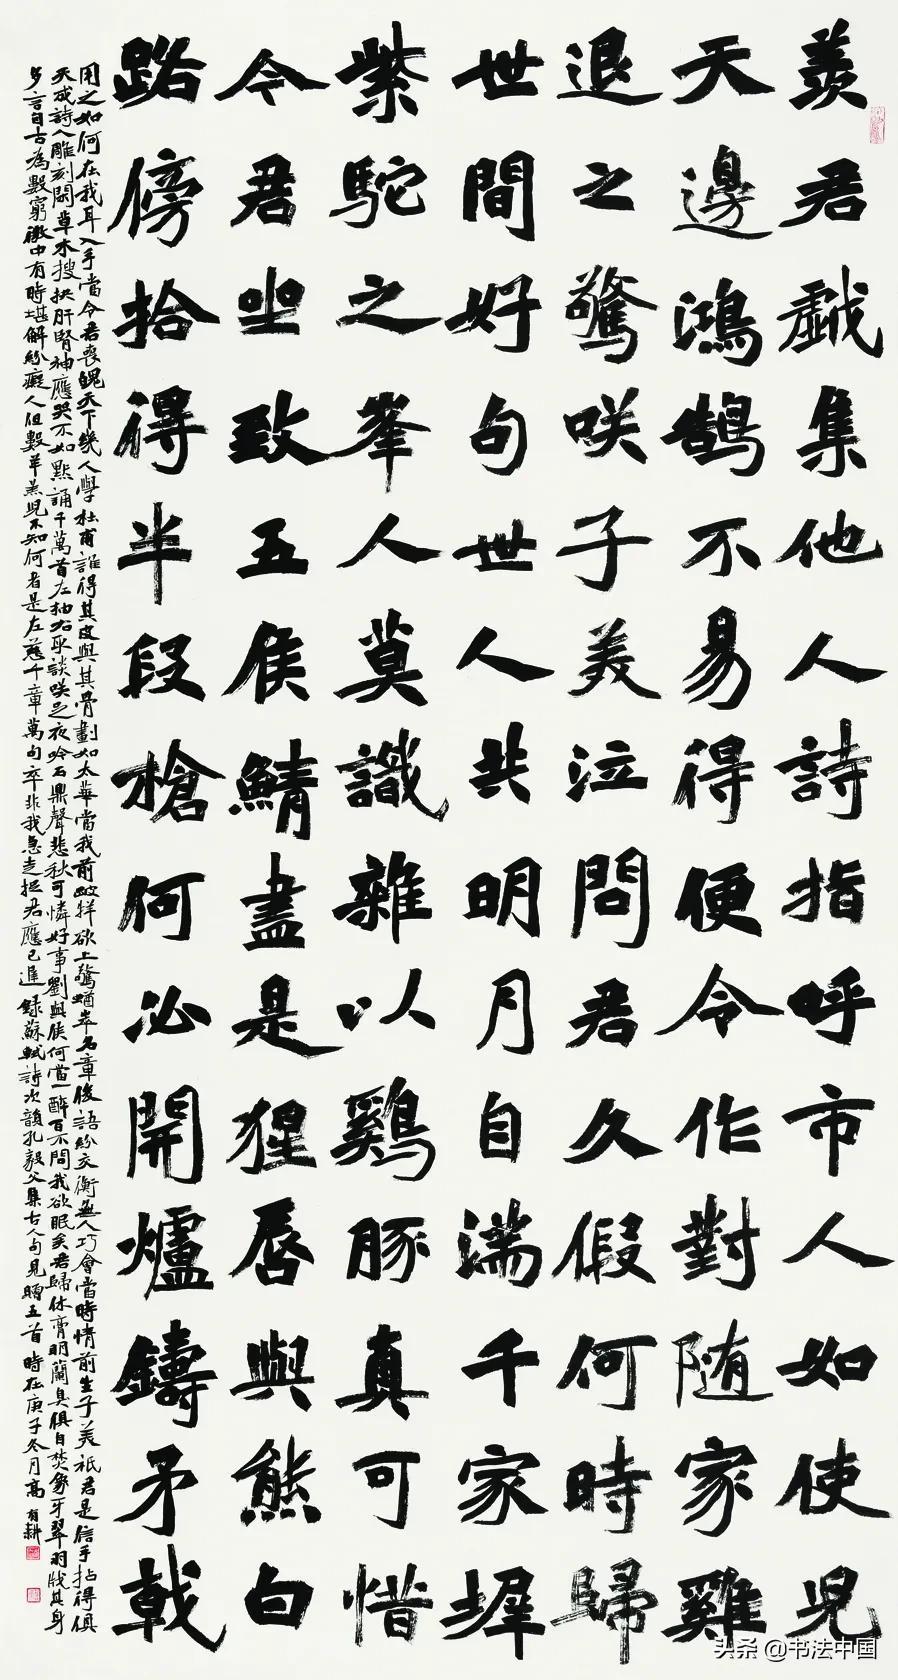 羨君戲集他人詩指呼市人如使兒
天邊鴻鵠不易得便令作對随家雞
退之驚咲子美泣問君久假何時歸
世間好句世人共明月自滿千家墀
紫駝之峯人莫識雜以鷄豚真可惜
今君坐致五侯鯖盡是猩唇與熊白
路傍拾得半段槍何必開爐鑄矛戟
用之如何在我耳入手當令君喪魄天下幾人學杜甫誰得其皮與其骨劃如太華當我前跛牂欲上驚崷崒名章俊語紛交衡無人巧會當時情前生子美祇君是信手拈得俱
天成詩人雕刻閑草木搜抉肝腎神應哭不如默誦千萬首左抽右取談咲足夜吟石鼎聲悲秋可憐好事劉與侯何當一醉百不問我欲眠矣君歸休膏明蘭臭俱自焚象牙翠羽戕其身
多言自古為數窮微中有時堪解紛癡人但數羊羔兒不知何者是左慈千章萬句卒非我急走捉君應已遲 録蘇軾詩次韻孔毅父集古人句見贈五首 時在庚子冬月高有耕
头条 @书法中国